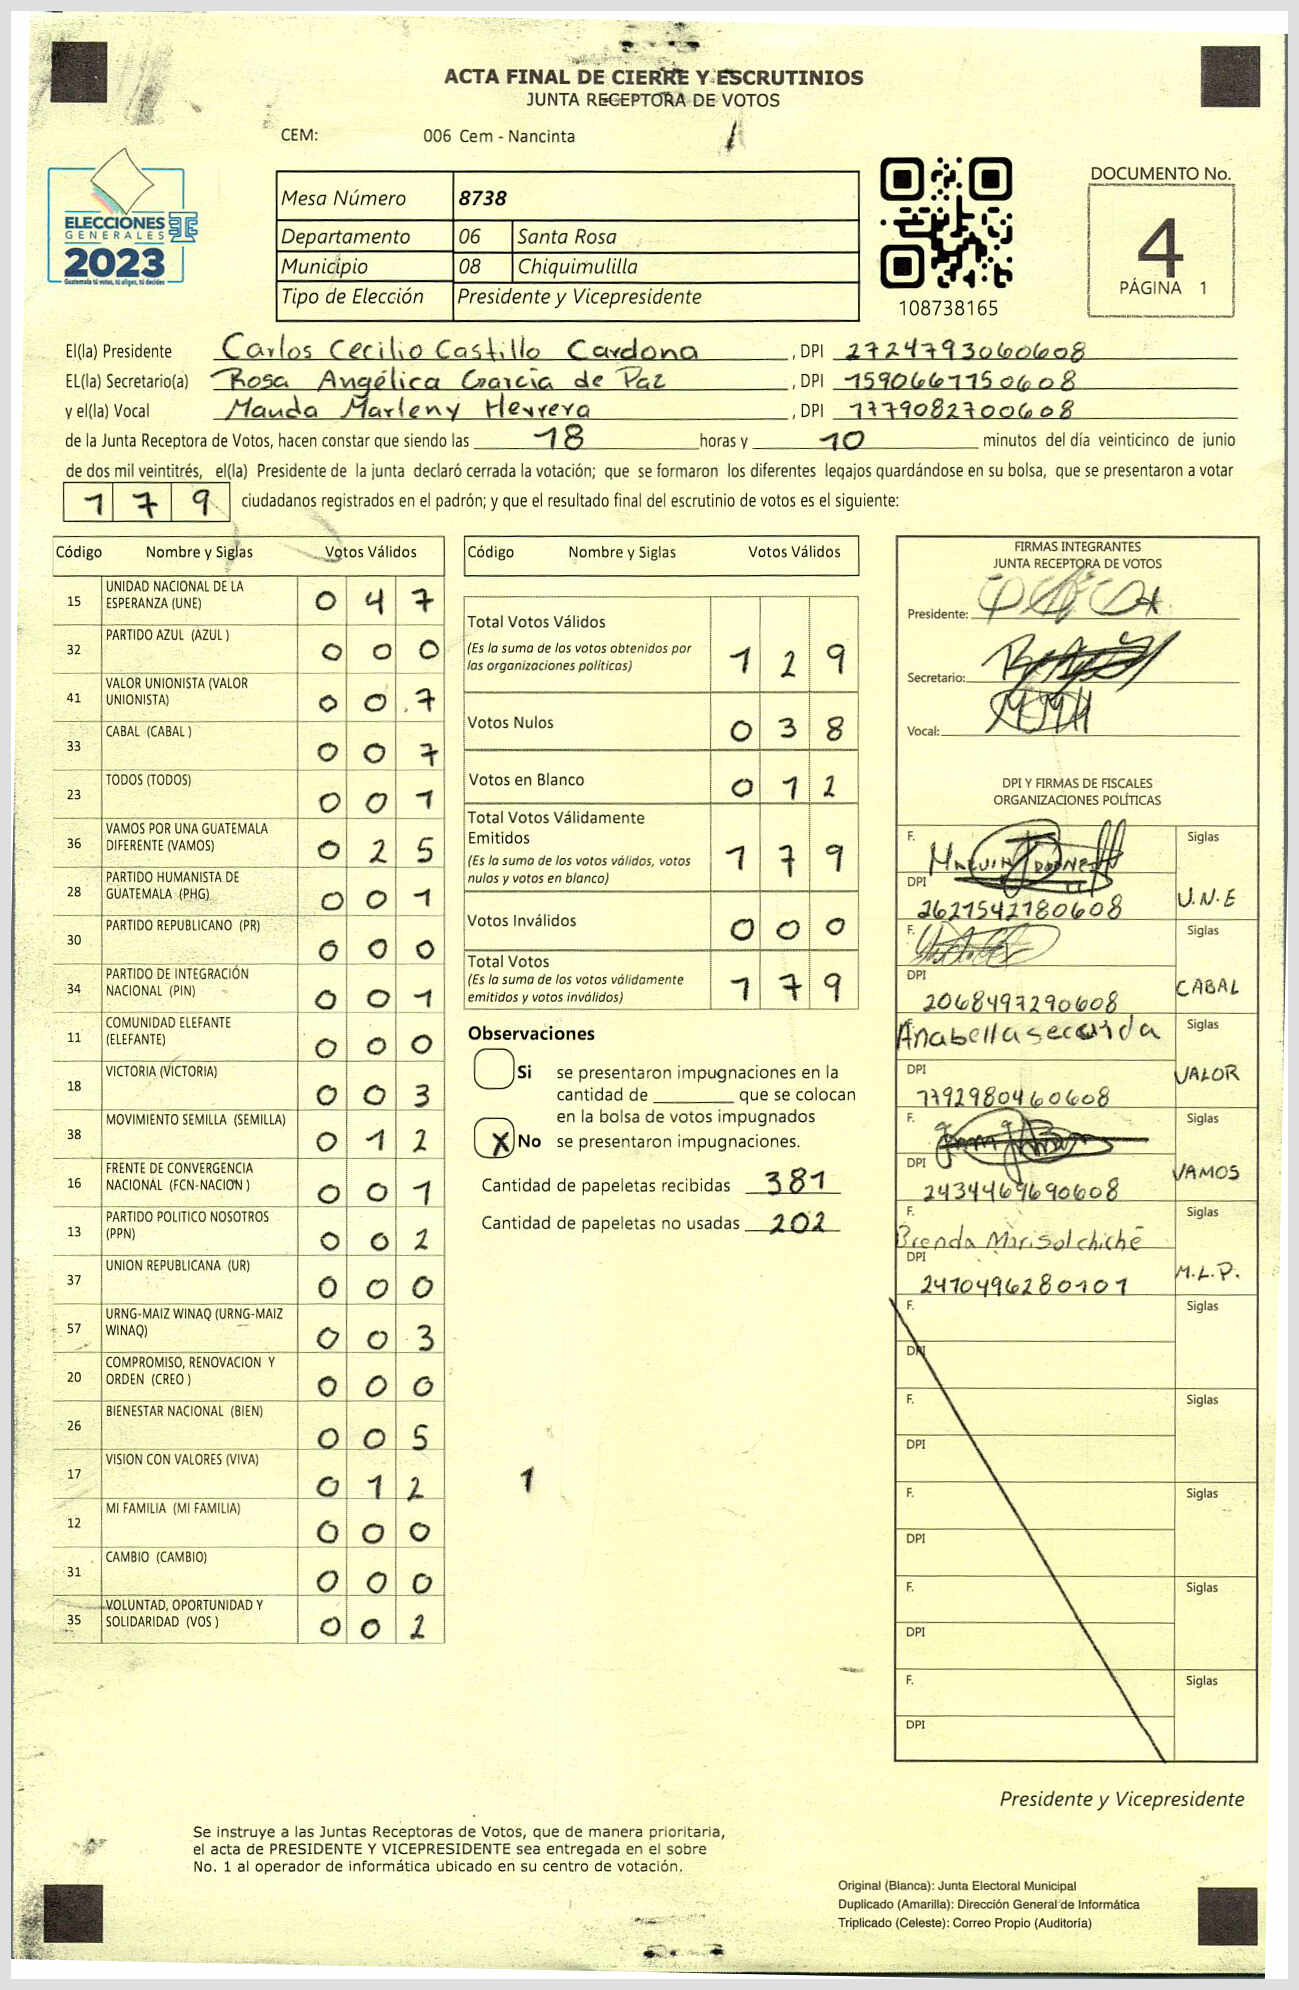 ACTA FINAL DE CIERRE Y ESCRUTINIOS
JUNTA RECEPTORA DE VOTOS
CEM: 006 Cem - Nancinta
ELECCIONES
GENERALES
2023
Guatemala tú votas, tú eliges, tú decides
TSE
Mesa Número 8738
Departamento 06 Santa Rosa
Municipio 08 Chiquimulilla
Tipo de Elección Presidente y Vicepresidente
108738165
DOCUMENTO No.
4
PÁGINA 1
El(la) Presidente Carlos Cecilio Castillo Cardona, DPI 2724793060608
EL(la) Secretario(a) Rosa Angélica García de Paz, DPI 1590667750608
y el(la) Vocal Manda Marleny Herrera, DPI 1779082700608
de la Junta Receptora de Votos, hacen constar que siendo las 18 horas y 10 minutos del día veinticinco de junio
de dos mil veintitrés, el(la) Presidente de la junta declaró cerrada la votación; que se formaron los diferentes legajos quardándose en su bolsa, que se presentaron a votar
179 ciudadanos registrados en el padrón; y que el resultado final del escrutinio de votos es el siguiente:
Código Nombre y Siglas Votos Válidos
15 UNIDAD NACIONAL DE LA ESPERANZA (UNE) 0 4 7
32 PARTIDO AZUL (AZUL ) 0 0 0
41 VALOR UNIONISTA (VALOR UNIONISTA) 0 0 7
33 CABAL (CABAL ) 0 0 7
23 TODOS (TODOS) 0 0 1
36 VAMOS POR UNA GUATEMALA DIFERENTE (VAMOS) 0 2 5
28 PARTIDO HUMANISTA DE GUATEMALA (PHG) 0 0 1
30 PARTIDO REPUBLICANO (PR) 0 0 0
34 PARTIDO DE INTEGRACIÓN NACIONAL (PIN) 0 0 1
11 COMUNIDAD ELEFANTE (ELEFANTE) 0 0 0
18 VICTORIA (VICTORIA) 0 0 3
38 MOVIMIENTO SEMILLA (SEMILLA) 0 1 2
16 FRENTE DE CONVERGENCIA NACIONAL (FCN-NACION ) 0 0 1
13 PARTIDO POLITICO NOSOTROS (PPN) 0 0 2
37 UNION REPUBLICANA (UR) 0 0 0
57 URNG-MAIZ WINAQ (URNG-MAIZ WINAQ) 0 0 3
20 COMPROMISO, RENOVACION Y ORDEN (CREO ) 0 0 0
26 BIENESTAR NACIONAL (BIEN) 0 0 5
17 VISION CON VALORES (VIVA) 0 1 2
12 MI FAMILIA (MI FAMILIA) 0 0 0
31 CAMBIO (CAMBIO) 0 0 0
35 VOLUNTAD, OPORTUNIDAD Y SOLIDARIDAD (VOS ) 0 0 2
Código Nombre y Siglas Votos Válidos
Total Votos Válidos
(Es la suma de los votos obtenidos por las organizaciones políticas) 1 2 9
Votos Nulos 0 3 8
Votos en Blanco 0 1 2
Total Votos Válidamente Emitidos
(Es la suma de los votos válidos, votos nulos y votos en blanco) 1 7 9
Votos Inválidos 0 0 0
Total Votos
(Es la suma de los votos válidamente emitidos y votos inválidos) 1 7 9
Observaciones
Si se presentaron impugnaciones en la
cantidad de ________ que se colocan
en la bolsa de votos impugnados
X No se presentaron impugnaciones.
Cantidad de papeletas recibidas 381
Cantidad de papeletas no usadas 202
1
FIRMAS INTEGRANTES
JUNTA RECEPTORA DE VOTOS
Presidente:
Secretario:
Vocal:
DPI Y FIRMAS DE FISCALES
ORGANIZACIONES POLÍTICAS
F. Siglas
DPI 2627542780608 U.N.E
F. Siglas
DPI 2068497290608 CABAL
F. Anabella secunda Siglas
DPI 7792980460608 VALOR
F. Siglas
DPI 2434469690608 VAMOS
F. Brenda Marisol chiché Siglas
DPI 2470496280101 M.L.P.
F. Siglas
DPI
F. Siglas
DPI
F. Siglas
DPI
F. Siglas
DPI
F. Siglas
DPI
Presidente y Vicepresidente
Se instruye a las Juntas Receptoras de Votos, que de manera prioritaria,
el acta de PRESIDENTE Y VICEPRESIDENTE sea entregada en el sobre
No. 1 al operador de informática ubicado en su centro de votación.
Original (Blanca): Junta Electoral Municipal
Duplicado (Amarilla): Dirección General de Informática
Triplicado (Celeste): Correo Propio (Auditoría)